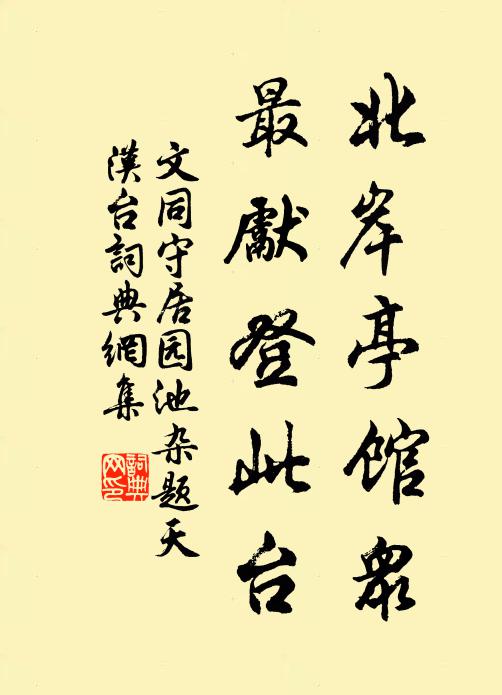 北岸亭馆眾
最獻登此台
文同守居园池杂题天
漢台詞典網集
詞典
网印